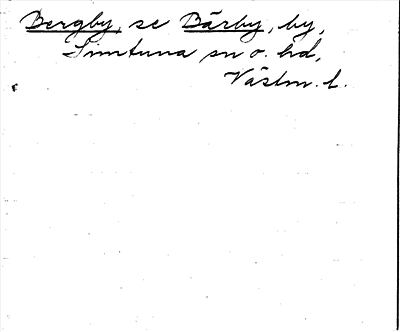 Bergby, se Bärby, by,
Simtuna sn o. hd,
Västm. l.